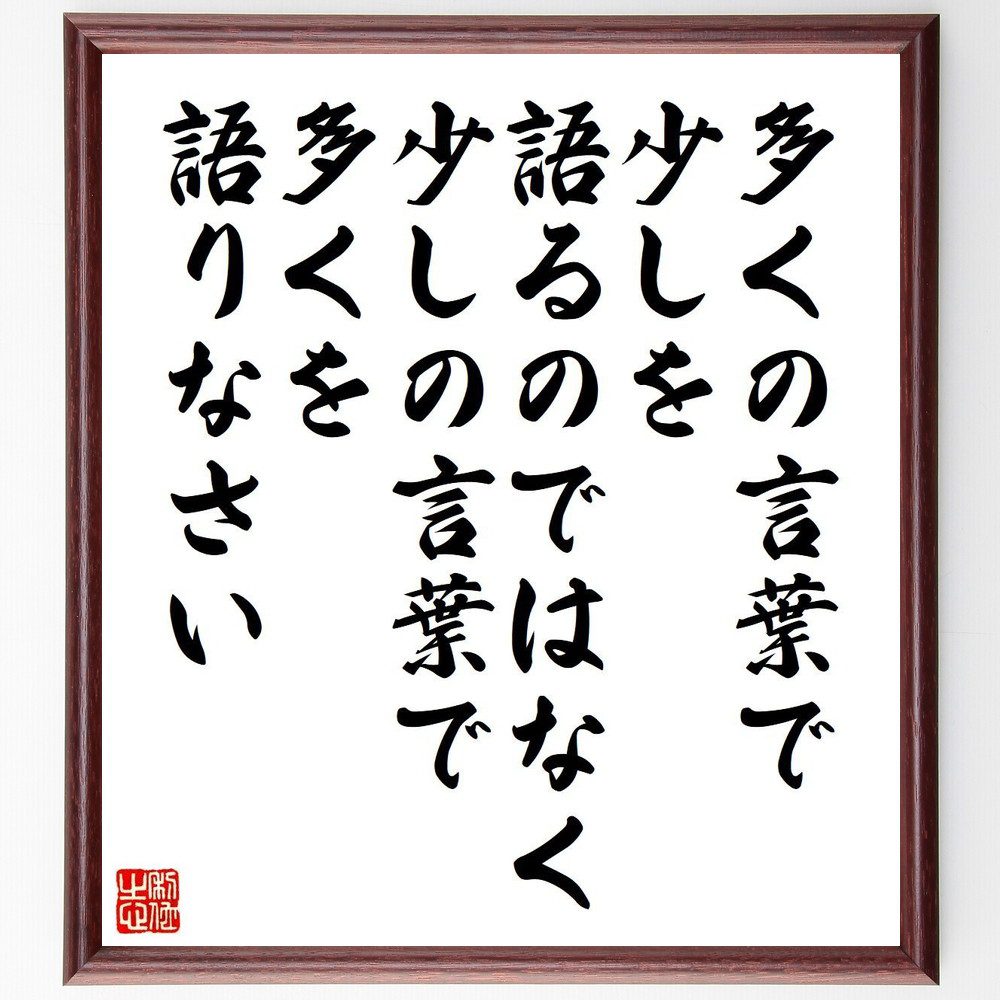 多くの言葉で
少しを
語るのではなく
少しの言葉で
多くを
語りなさい